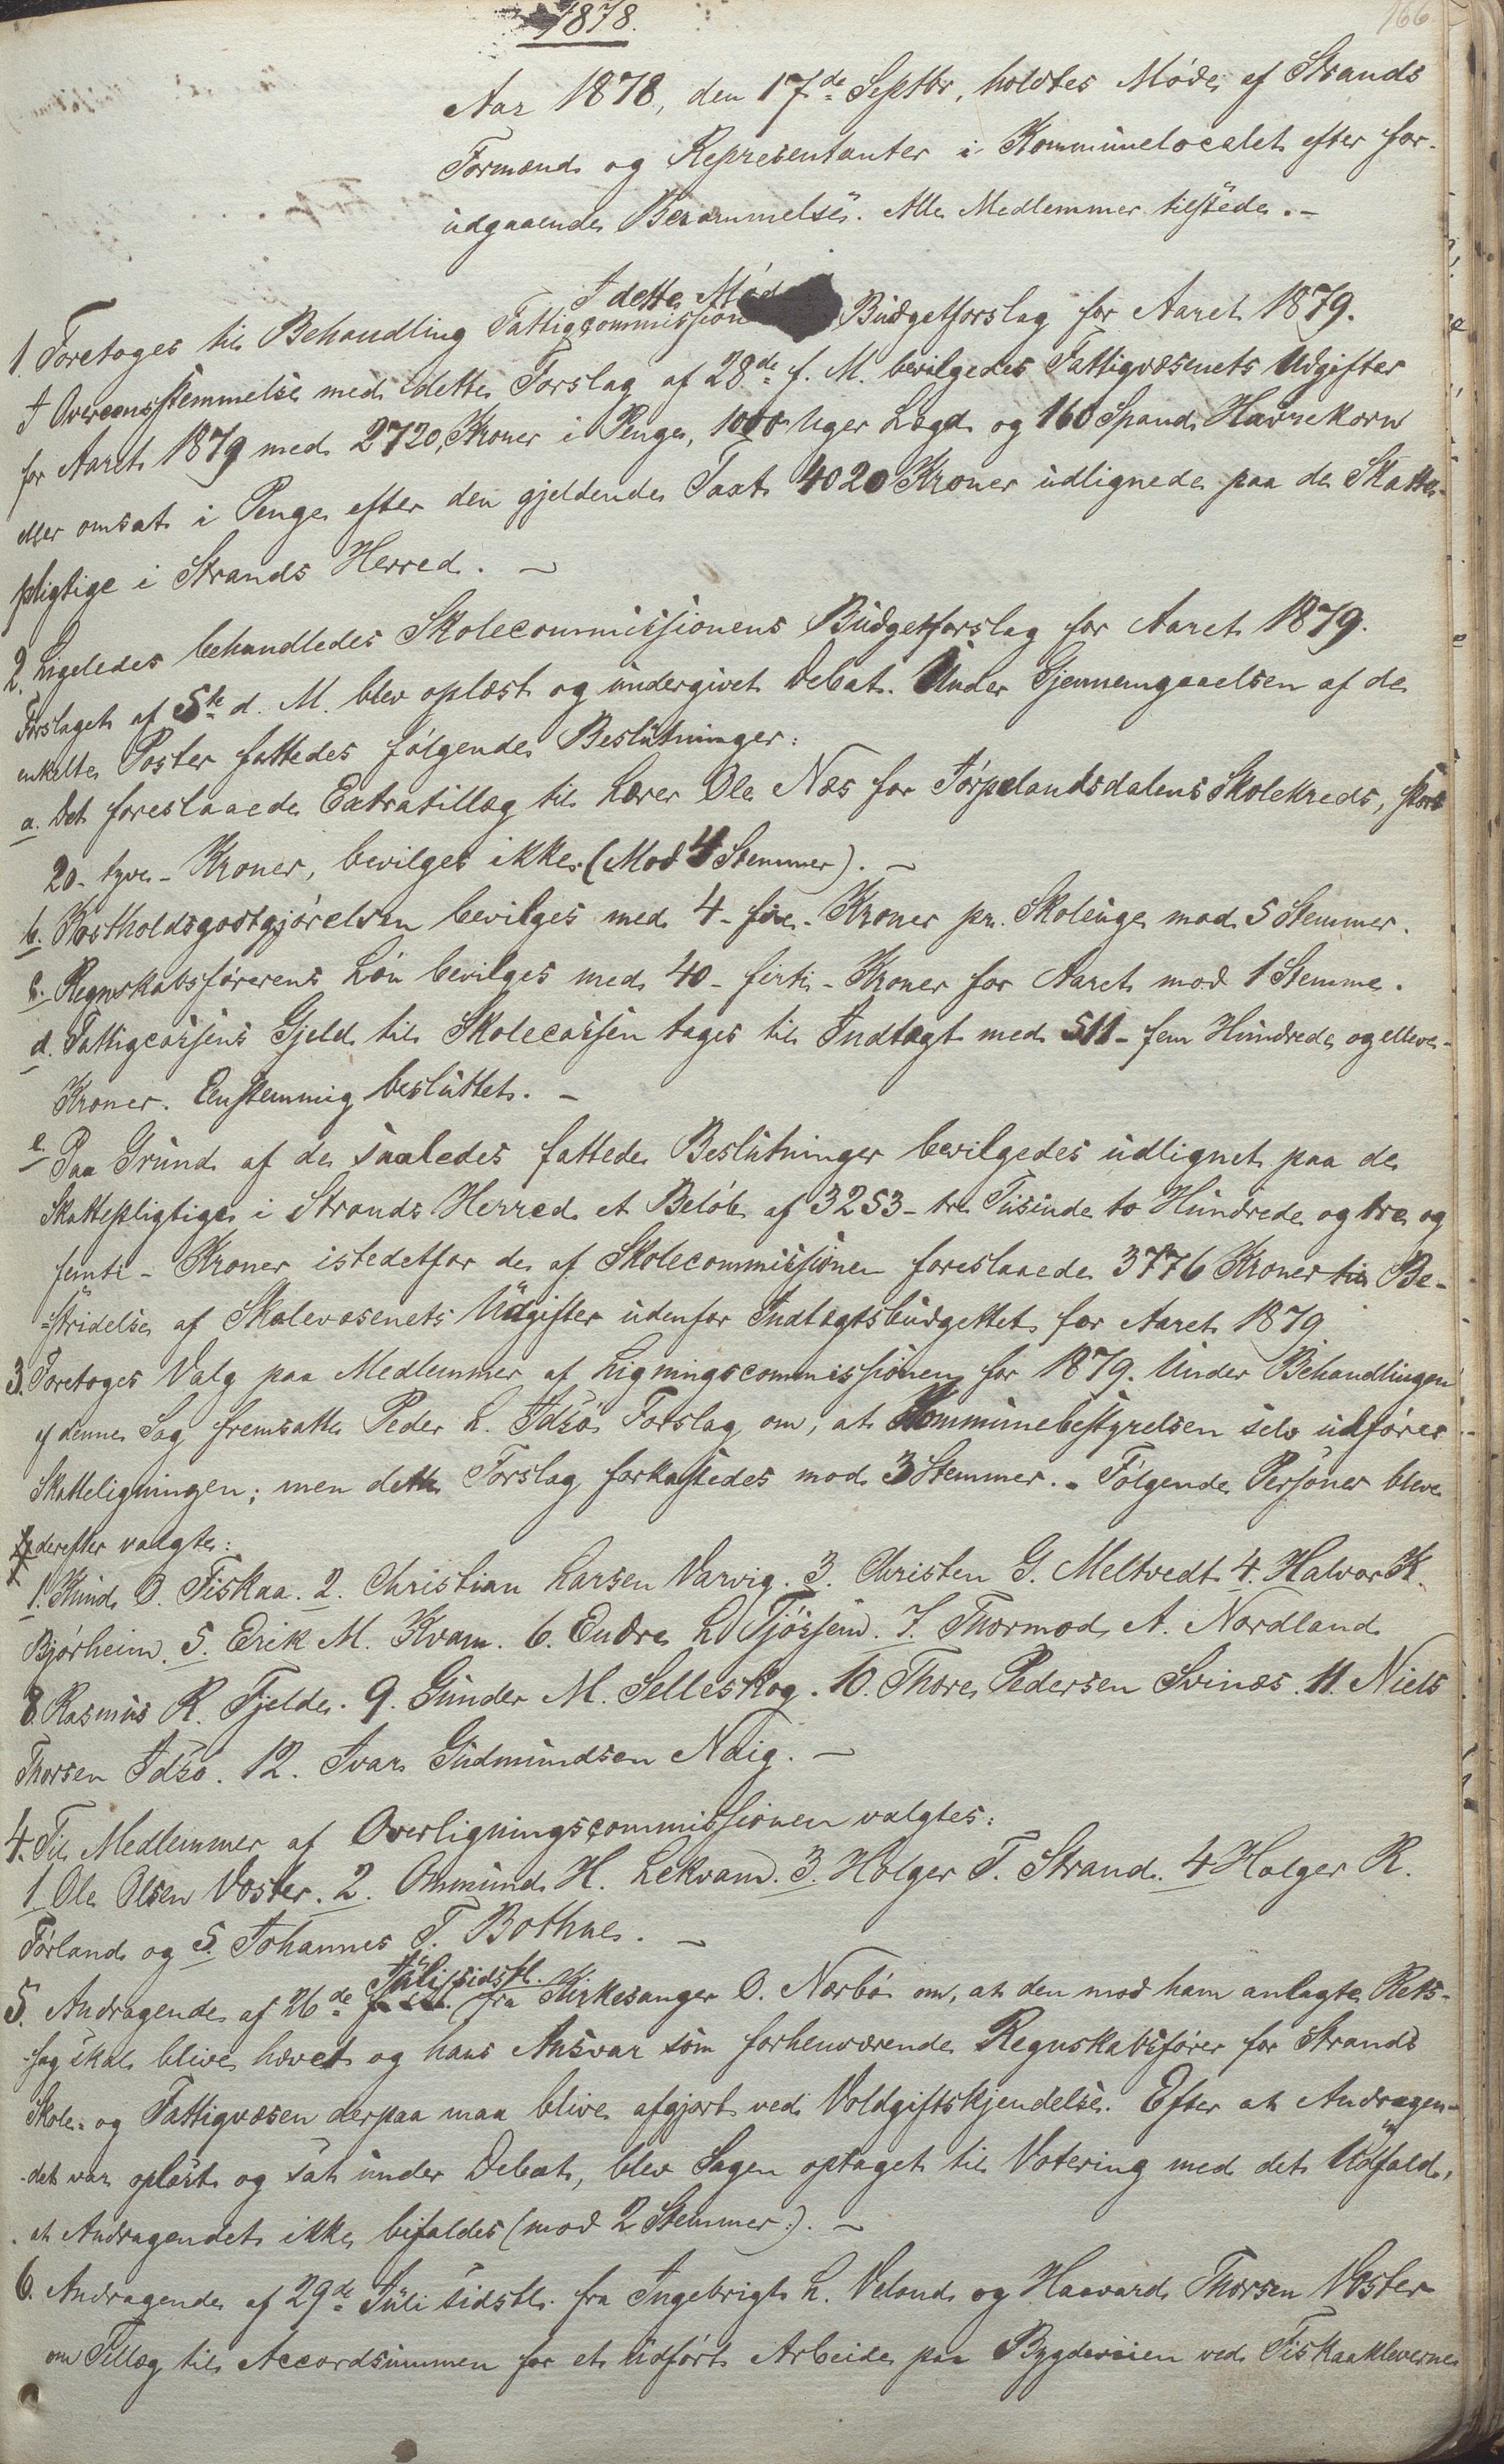 1878.
166.
Aar 1878, den 17de Septbr, holdtes Møde af Strands
Formænd og Representanter i Kommunelocalet efter for-
udgaaende Berammelse. Alle Medlemmer tilstede. -
I dette Møde
1. Foretoges til Behandling Fattigcommission Budgetforslag for Aaret 1879.
I Overeensstemmelse med dette Forslag af 28de f. M. bevilgedes Fattigvæsenets Udgifter
for Aaret 1879 med 2720, Kroner i Penge, 1000 Uger Lægd og 160 Spand Havrekorn
eller omsat i Penge efter den gjeldende Taxt 4020 Kroner udlignede paa de Skatte-
pligtige i Strands Herred. -
2. Ligeledes behandledes Skolecommissionens Budgetforslag for Aaret 1879.
Forslaget af 5te d. M. blev oplæst og undergivet Debat. Under Gjennemgaaelsen af de
enkelte Poster fattedes følgende Beslutninger:
a. Det foreslaaede Extratillæg til Lærer Ole Næs for Jørpelandsdalens Skolekreds, stort
20 - tyve - Kroner, bevilges ikke. (Mod 4 Stemmer). -
b. Kostholdsgodtgjørelsen bevilges med 4 - fire - Kroner pr. Skoleuge mod 5 Stemmer.
c. Regnskabsførerens Løn bevilges med 40 - firti - Kroner for Aaret mod 1 Stemme.
d. Fattigcassens Gjeld til Skolecassen tages til Indtægt med 511 - fem Hundrede og elleve -
Kroner. Eenstemmig besluttet. -
e. Paa Grund af de saaledes fattede Beslutninger bevilgedes udlignet paa de
Skattepligtige i Strands Herred et Beløb af 3253 - tre Tusinde to Hundrede og tre og
femti - Kroner istedetfor de af Skolecommissionen foreslaaede 3776 Kroner til Be-
-stridelse af Skolevæsenets Udgifter udenfor Indtægtsbudgettet for Aaret 1879
3. Foretoges Valg paa Medlemmer af Ligningscommissionen for 1879. Under Behandlingen
af denne Sag fremsatte Peder L. Idsø Forslag om, at Kommunebestyrelsen selv udfører
Skatteligningen; men dette Forslag forkastedes mod 3 Stemmer. - Følgende Personer bleve
derefter valgte:
1. Knud O. Fiskaa. 2. Christian Larsen Varvig. 3. Christen G. Meltvedt 4. Halvor K.
Bjørheim. 5. Erik M. Kvam. 6. Endre L Tjøssem. 7. Thormod A. Nordland
8. Rasmus R. Fjelde. 9. Gunder M. Selleskog. 10. Thore Pedersen Svinæs. 11. Niels
Thorsen Idsø. 12. Ivar Gudmundsen Nåig. -
4. Til Medlemmer af Overligningscommissionen valgtes:
1. Ole Olsen Voster. 2. Ommund H. Lekvam. 3. Holger T. Strand. 4 Holger R.
Førland og 5. Johannes T. Bothne. -
Juli sidstl.
5. Andragende af 26de fra Kirkesanger O. Norbø om, at den mod ham anlagte Rets-
-sag skal blive hævet og hans Ansvar som forhenværende Regnskabsfører for Strands
Skole- og Fattigvæsen derpaa maa blive afgjort ved Voldgiftskjendelse. Efter at Andragen-
-det var oplæst og sat under Debat, blev Sagen optaget til Votering med det Udfald,
at Andragendet ikke bifaldes (mod 2 Stemmer). -
6. Andragende af 29de Juli sidstl. fra Ingebrigt L. Veland og Haavard Thorsen Voster
om Tillæg til Accordsummen for et udført Arbeide paa Bygdeveien ved Fiskaakleverne